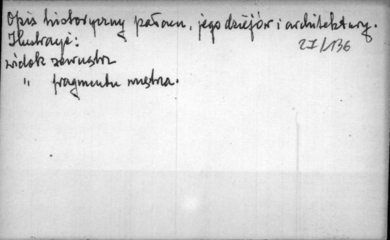 Opis historyczny pałacu, jego dziejów i architektury.
27/136
Ilustracje:
widok zewnątrz
" fragmentu wnętrza.